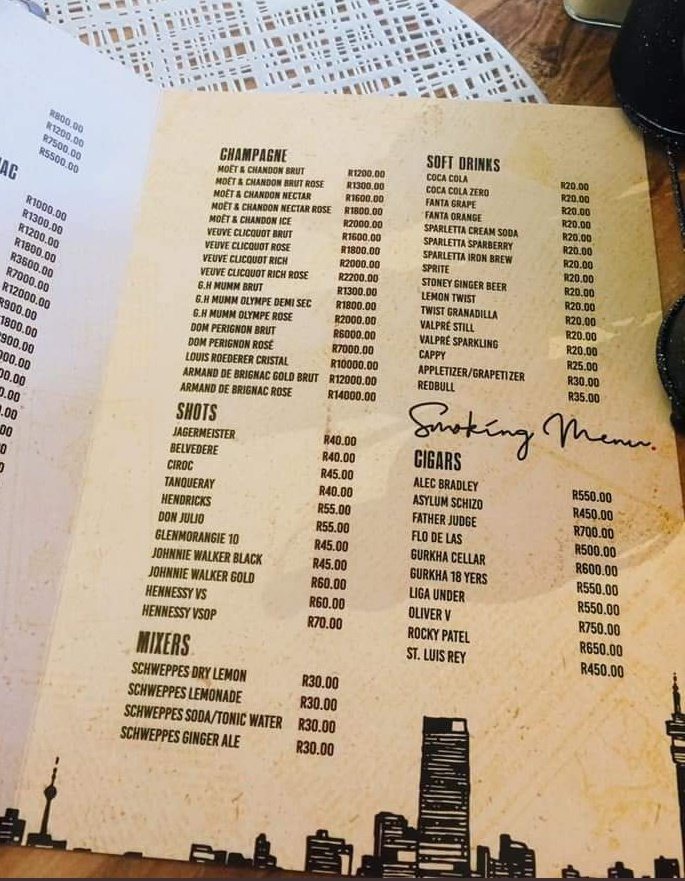 R800.00
R1200.00
R7500.00
R5500.00
AC
R1000.00
R1300.00
R1200.00
R1800.00
R3600.00
R7000.00
R12000.00
R900.00
1800.00
900.00
00.00
00.00
0.00
.00
00
00
0
CHAMPAGNE
MOËT & CHANDON BRUT R1200.00
MOËT & CHANDON BRUT ROSE R1300.00
MOËT & CHANDON NECTAR R1600.00
MOËT & CHANDON NECTAR ROSE R1800.00
MOËT & CHANDON ICE R2000.00
VEUVE CLICQUOT BRUT R1600.00
VEUVE CLICQUOT ROSE R1800.00
VEUVE CLICQUOT RICH R2000.00
VEUVE CLICQUOT RICH ROSE R2200.00
G.H MUMM BRUT R1300.00
G.H MUMM OLYMPE DEMI SEC R1800.00
G.H MUMM OLYMPE ROSE R2000.00
DOM PERIGNON BRUT R6000.00
DOM PERIGNON ROSÉ R7000.00
LOUIS ROEDERER CRISTAL R10000.00
ARMAND DE BRIGNAC GOLD BRUT R12000.00
ARMAND DE BRIGNAC ROSE R14000.00
SHOTS
JAGERMEISTER R40.00
BELVEDERE R40.00
CIROC R45.00
TANQUERAY R40.00
HENDRICKS R55.00
DON JULIO R55.00
GLENMORANGIE 10 R45.00
JOHNNIE WALKER BLACK R45.00
JOHNNIE WALKER GOLD R60.00
HENNESSY VS R60.00
HENNESSY VSOP R70.00
MIXERS
SCHWEPPES DRY LEMON R30.00
SCHWEPPES LEMONADE R30.00
SCHWEPPES SODA/TONIC WATER R30.00
SCHWEPPES GINGER ALE R30.00
SOFT DRINKS
COCA COLA R20.00
COCA COLA ZERO R20.00
FANTA GRAPE R20.00
FANTA ORANGE R20.00
SPARLETTA CREAM SODA R20.00
SPARLETTA SPARBERRY R20.00
SPARLETTA IRON BREW R20.00
SPRITE R20.00
STONEY GINGER BEER R20.00
LEMON TWIST R20.00
TWIST GRANADILLA R20.00
VALPRÉ STILL R20.00
VALPRÉ SPARKLING R20.00
CAPPY R25.00
APPLETIZER/GRAPETIZER R30.00
REDBULL R35.00
Smoking Menu.
CIGARS
ALEC BRADLEY R550.00
ASYLUM SCHIZO R450.00
FATHER JUDGE R700.00
FLO DE LAS R500.00
GURKHA CELLAR R600.00
GURKHA 18 YERS R550.00
LIGA UNDER R550.00
OLIVER V R750.00
ROCKY PATEL R650.00
ST. LUIS REY R450.00